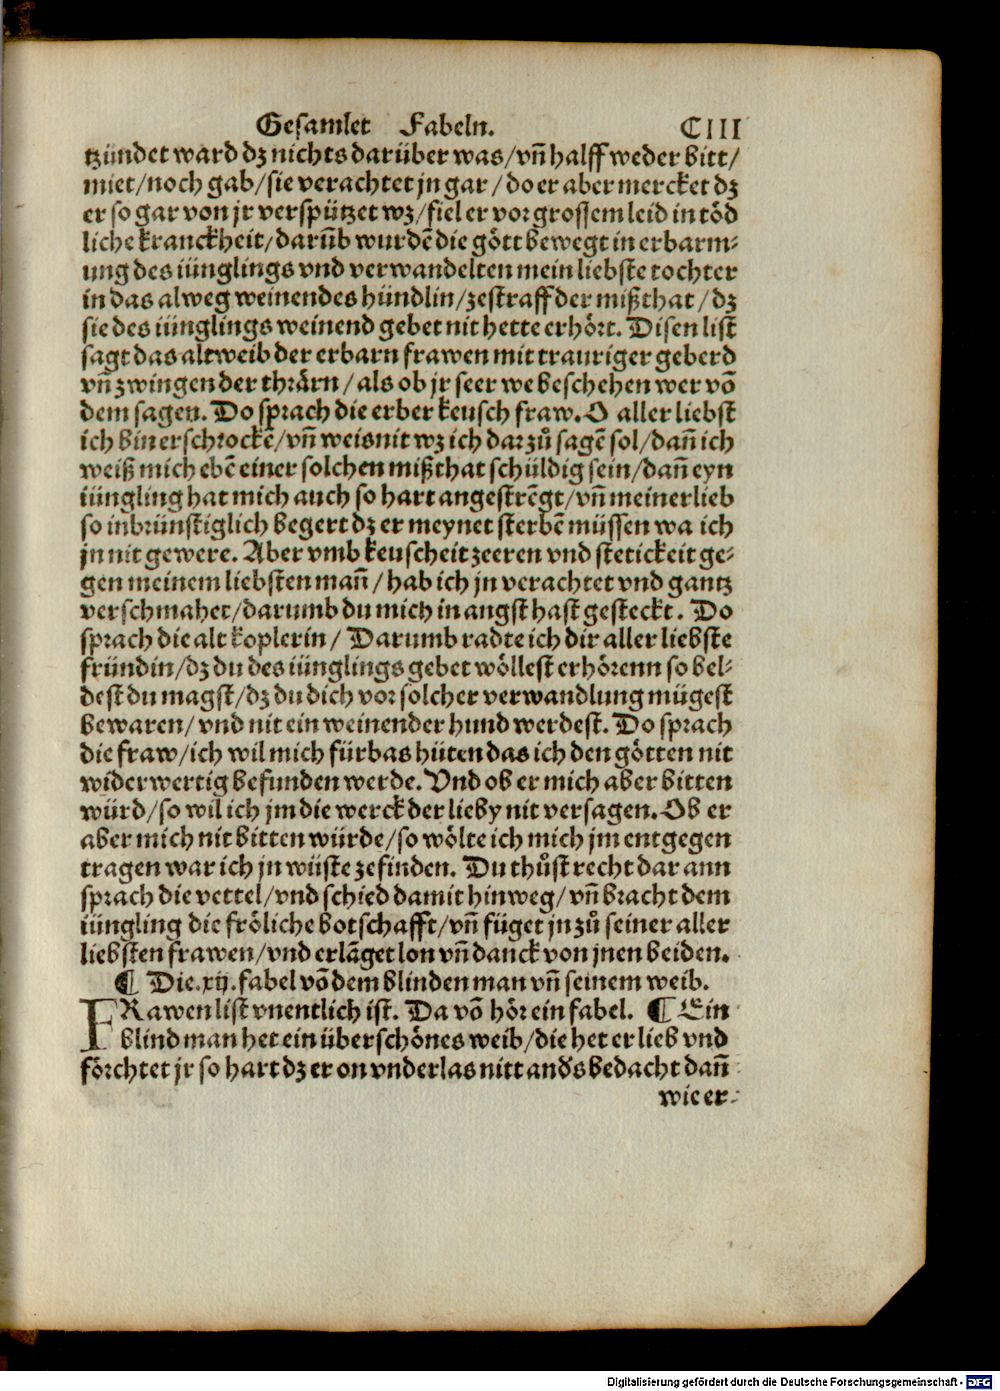 Gesamlet Fabeln. CIII
tzündet ward dz nichts darüber was/vñ halff weder bitt/
miet/noch gab/sie verachtet jn gar/do er aber mercket dz
er so gar von jr verspützet wz/fiel er vor grossem leid in töd
liche kranckheit/darũb wurdẽ die gött bewegt in erbarm⸗
ung des iünglings vnd verwandelten mein liebste tochter
in das alweg weinendes hündlin/zestraff der mißthat/dz
sie des iünglings weinend gebet nit hette erhört. Disen list
sagt das alt weib der erbarn frawen mit trauriger geberd
vñ zwingen der thrärn/als ob jr seer we beschehen wer võ
dem sagen. Do sprach die erber keusch fraw. O aller liebst
ich bin erschrockẽ/vñ weis nit wz ich darzů sagẽ sol/dañ ich
weiß mich ebẽ einer solchen mißthat schüldig sein/dañ eyn
iüngling hat mich auch so hart angestrẽgt/vñ meiner lieb
so inbrünstiglich begert dz er meynet sterbẽ müssen wa ich
jn nit gewere. Aber vmb keuscheit zeeren vnd stetickeit ge⸗
gen meinem liebsten mañ/hab ich jn verachtet vnd gantz
verschmahet/darumb du mich in angst hast gesteckt. Do
sprach die alt koplerin/Darumb radte ich dir aller liebste
fründin/dz du des iünglings gebet wöllest erhörenn so bel⸗
dest du magst/dz du dich vor solcher verwandlung mügest
bewaren/vnd nit ein weinender hund werdest. Do sprach
die fraw/ich wil mich fürbas hüten das ich den götten nit
widerwertig befunden werde. Vnd ob er mich aber bitten
würd/so wil ich jm die werck der lieby nit versagen. Ob er
aber mich nit bitten würde/so wölte ich mich jm entgegen
tragen war ich jn wüste zefinden. Du thůst recht dar ann
sprach die vettel/vnd schied damit hinweg/vñ bracht dem
iüngling die fröliche botschafft/vñ füget jn zů seiner aller
liebsten frawen/vnd erlãget lon vñ danck von jnen beiden.
¶ Die .xij. fabel võ dem blinden man vñ seinem weib.
FRawen list vnentlich ist. Da võ hör ein fabel. ¶ Ein
blind man het ein überschönes weib/die het er lieb vnd
förchtet jr so hart dz er on vnderlas nitt anďs bedacht dañ
wie er⸗
Digitalisierung gefördert durch die Deutsche Forschungsgemeinschaft - DFG